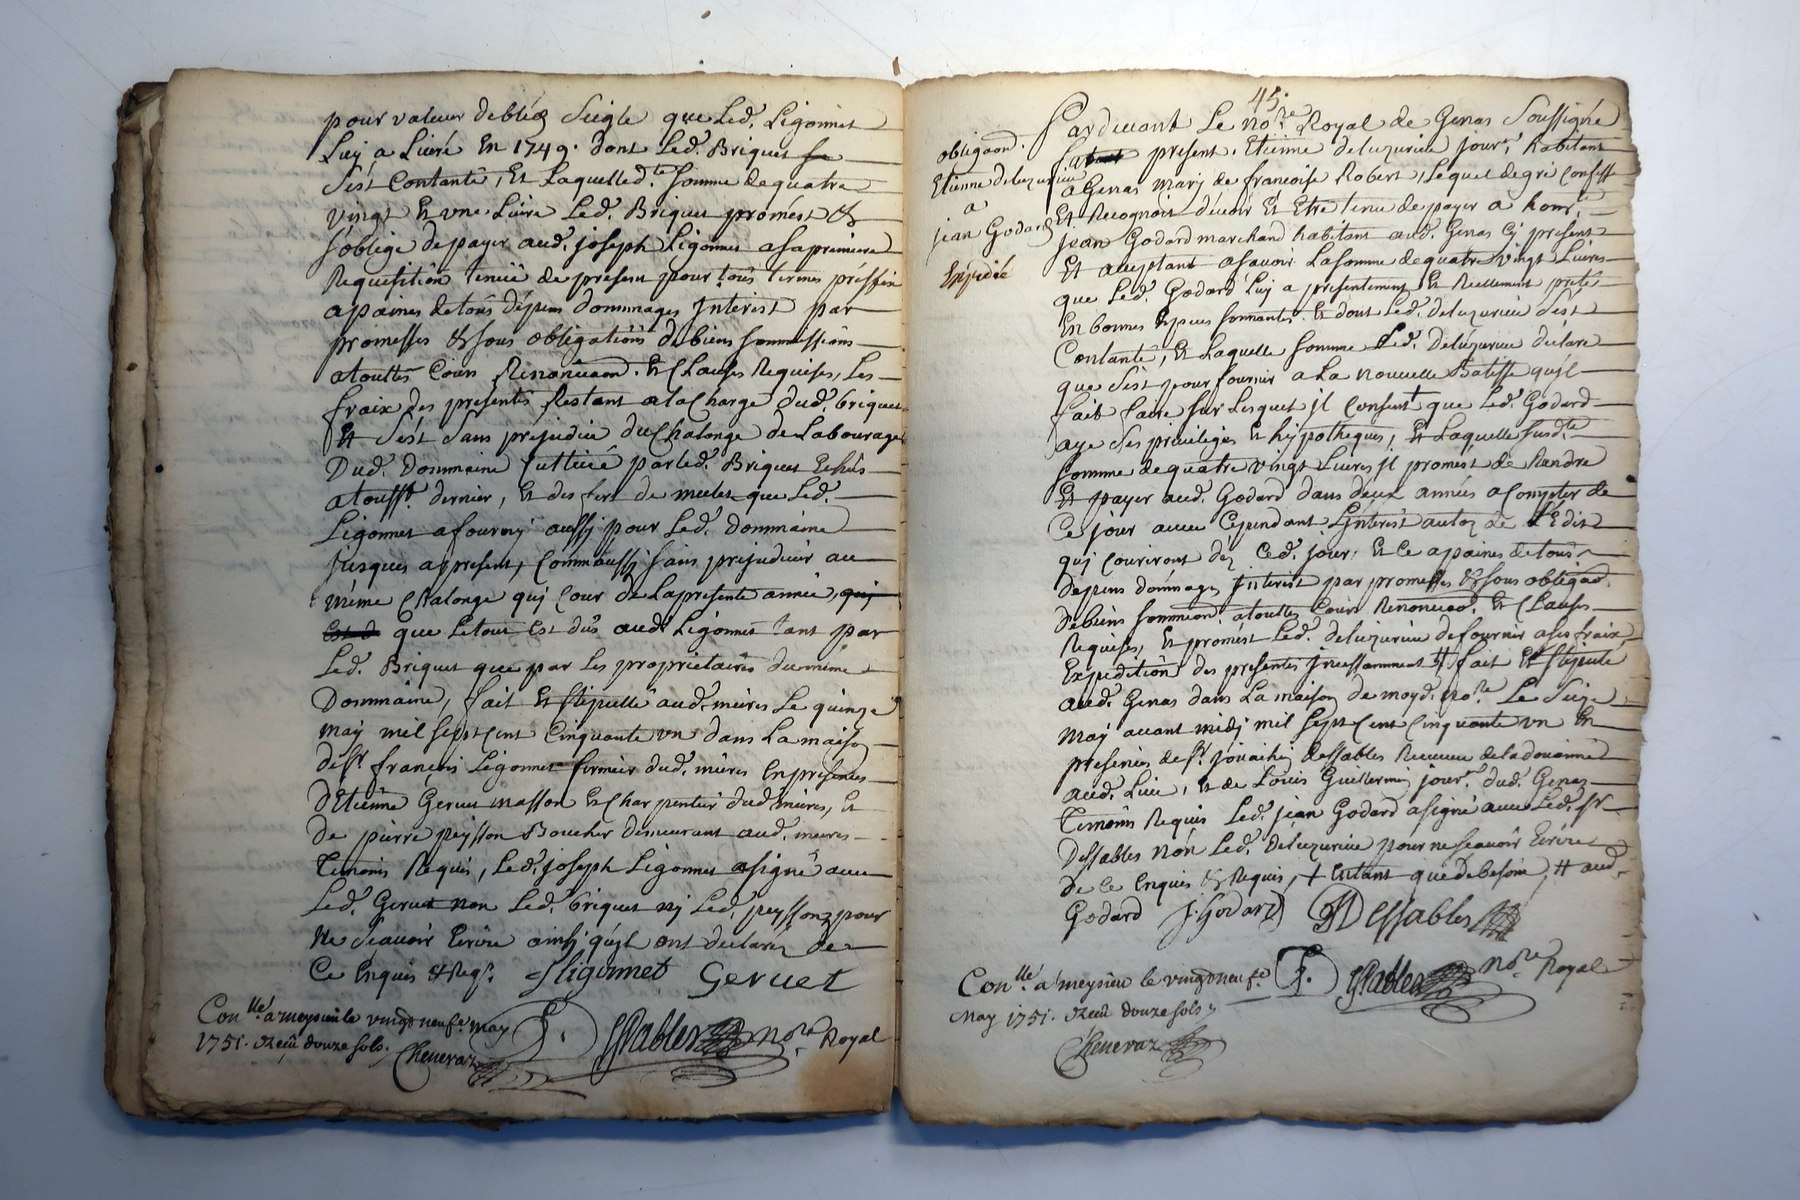 pour valeur de bléz Seigle que Led. Ligonnet
Luy a Livré En 1749. dont Led. Briquet
S'est Contanté, Et Laquelled.te Somme de quatre
vingt Et une Livre Led. Briquet promest &
S'oblige de payer aud. joseph Ligonnet a sa premiere
Requisition de present pour tous termes
a paines de tous dépens dommages Interest par
promesses & sous obligations de biens Sommissions
a touttes Cours Renonciaon. Et Clauses Requises, Les
fraix des presentes Restant a la Charge dud. briquet
Et S'est Sans préjudice du Chalonge de Labourage
Dud. Dommaine par led. Briquet
a tousst. dernier, Et des fers de mulet que Led.
Ligonnet a fourny aussy pour Led. Dommaine
jusques a present, Comm'aussy sans prejudicier au
même Chalonge quj Cour de La presente année,
que Le tout Est dus aud. Ligonnet tant par
Led. Briquet que par Les proprietaires du même
Dommaine, fait Et stipullé aud. mieres Le quinze
may mil sept Cent Cinquante un dans La maison
de Sr. françois Ligonnet fermier dud. mières En présences
d'Etienne Geruet masson Et Charpentier dud mieres, Et
de pierre peysson Boucher demeurant aud. mieres
Temoins Requis, Led. joseph Ligonnet a signé avec
Led. Geruet non Led. briquet nj Led. peysson pour
Ne Scavoir Ecrire ainsy qu'jl ont declaréz de
Ce Enquis & Reqs. Ligonnet Geruet
Con.lle a meysieu le vingt neuf.e may
1751. Reçu douze sols.
Cheneraz
No.re Royal
45.
Pardevant Le no.re Royal de Genas Soussigné
obligaon.
Etienne deluzurieu
a
jean Godard
Expedié
present. Etienne deluzurieu jour.r habitant
a Genas mary de francoise Robert, Lequel de gré Confesse
Et Recognoit devoir Et Etre tenu de payer a hon.
jean Godard marchand habitant aud. Genas Cy present
Et acceptant a savoir La somme de quatre vingt Livres
que Led. Godard Luy a presentement Et Reellement preté
En bonnes Especes Sonnantes. Et dont Led. deluzurieu s'est
Contanté, Et Laquelle Somme Led. deluzurieu declare
que S'est pour fournir a La nouvelle Batisse qu'jl
fait faire Sur Lesquel jl Consent que Led. Godard
aye Ses privileges Et hypotheques, Et Laquelle susd.te
Somme de quatre vingt Livres jl promest de Rendre
Et payer aud. Godard dans deux années a Compter de
Ce jour avec Cependant L'interest au de L'Edit
quj Couriront déz Ced. jour, Et Ce a paines de tous
depens dommages Interest par promesses & sous obligaon.
de biens Sommission a touttes Cours Renonciaon. Et Clauses
Requises, Et promest Led. deluzurieu de fournir a ses fraix
Expedition des presentes Incessamment # fait Et stipulé
aud. Genas dans La maison de moyd. no.re Le Seize
May avant midy mil Sept Cent Cinquante un En
presences de Sr. jouachin dessables Receveur de la douanne
aud. Lieu, Et de Louis Guillermin jour.r dud. Genas
Temoins Requis Led. jean Godard a signé avec Led. Sr
Dessables Non Led. deluzurieu pour ne Scavoir Ecrire
de Ce Enquis & Requis, + Entant que de besoin, # aud.
Godard J. Godard Dessables
Con.lle a meysieu le vingt neuf.e
May 1751. Reçu douze sols
Cheneraz
No.re Royal